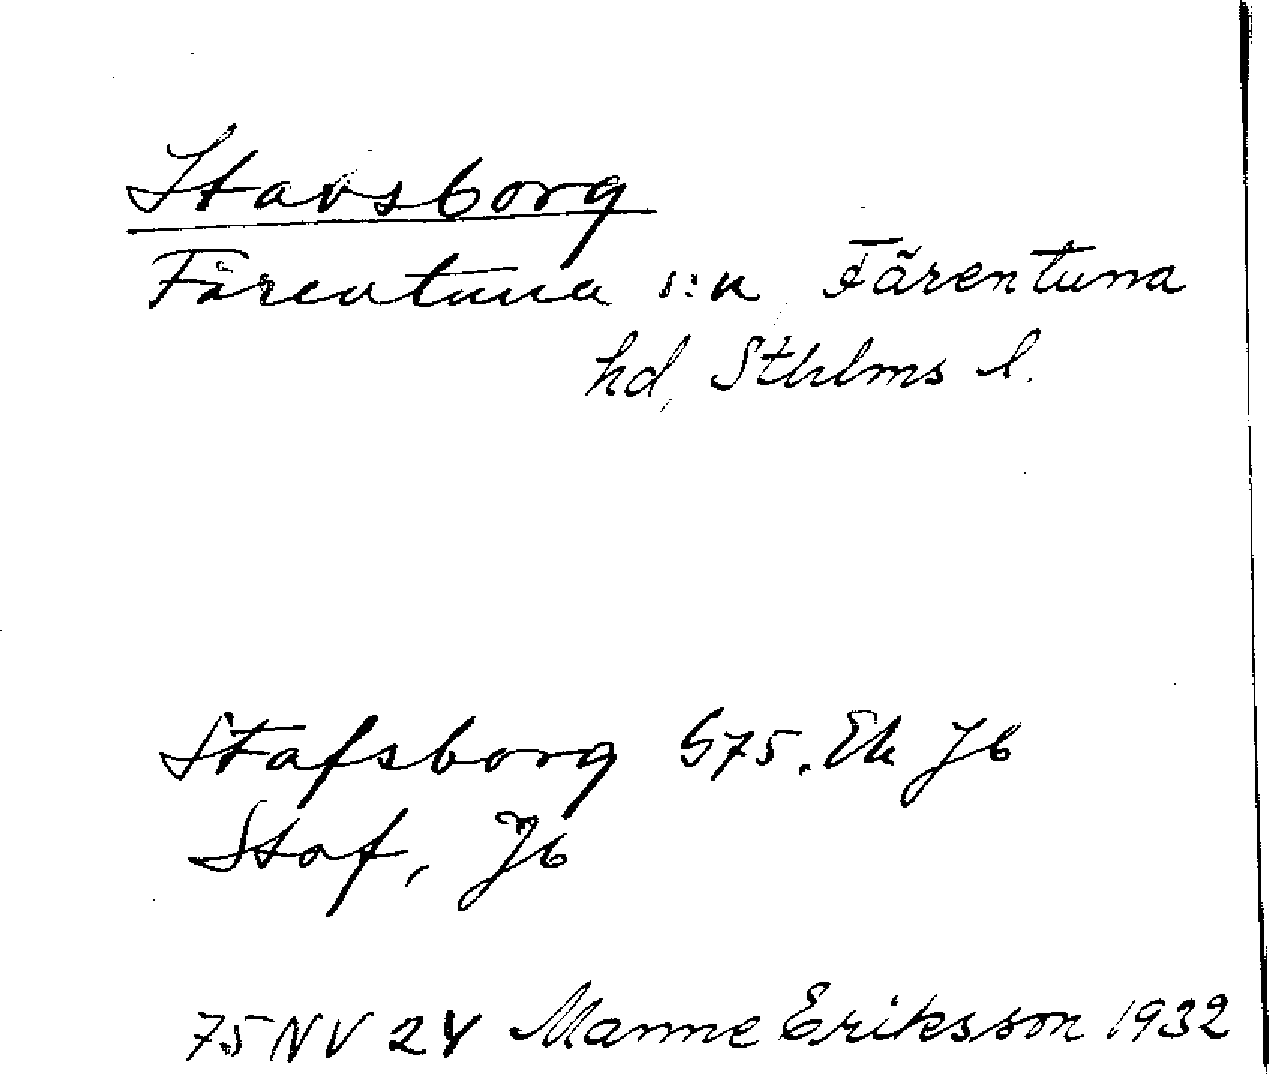 Stavsborg
Färentuna s:n, Färentuna
hd, Sthlms l.
Stafsborg G75. Ek Jb
Staf, Jb
75 NV 24 Manne Eriksson 1932